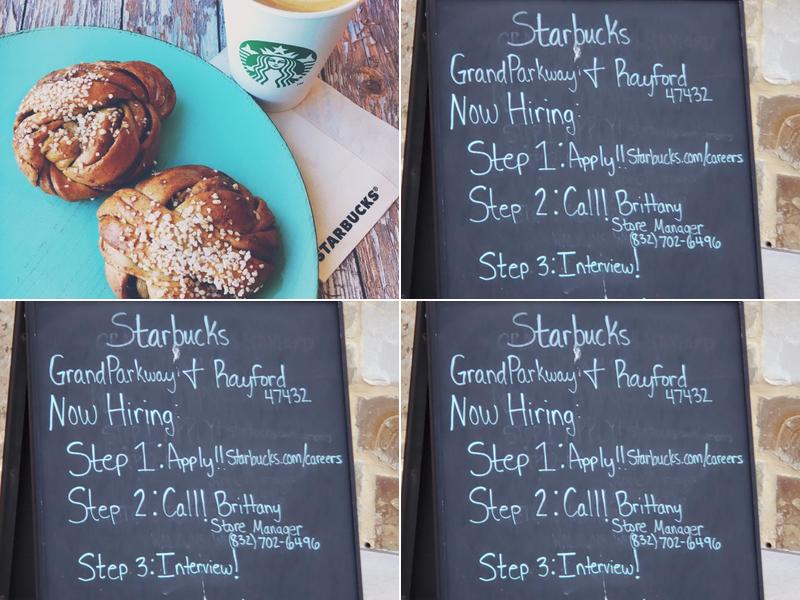 STARBUCKS®
Starbucks
GrandParkway & Rayford
47432
Now Hiring:
Step 1: Apply!! Starbucks.com/careers
Step 2: Call! Brittany
Store Manager
(832) 702-6496
Step 3: Interview!
Starbucks
GrandParkway & Rayford
47432
Now Hiring:
Step 1: Apply!! Starbucks.com/careers
Step 2: Call! Brittany
Store Manager
(832) 702-6496
Step 3: Interview!
Starbucks
GrandParkway & Rayford
47432
Now Hiring:
Step 1: Apply!! Starbucks.com/careers
Step 2: Call! Brittany
Store Manager
(832) 702-6496
Step 3: Interview!